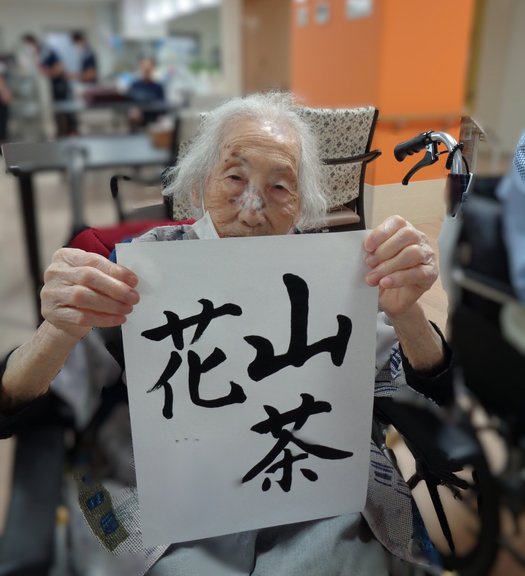 山茶
花